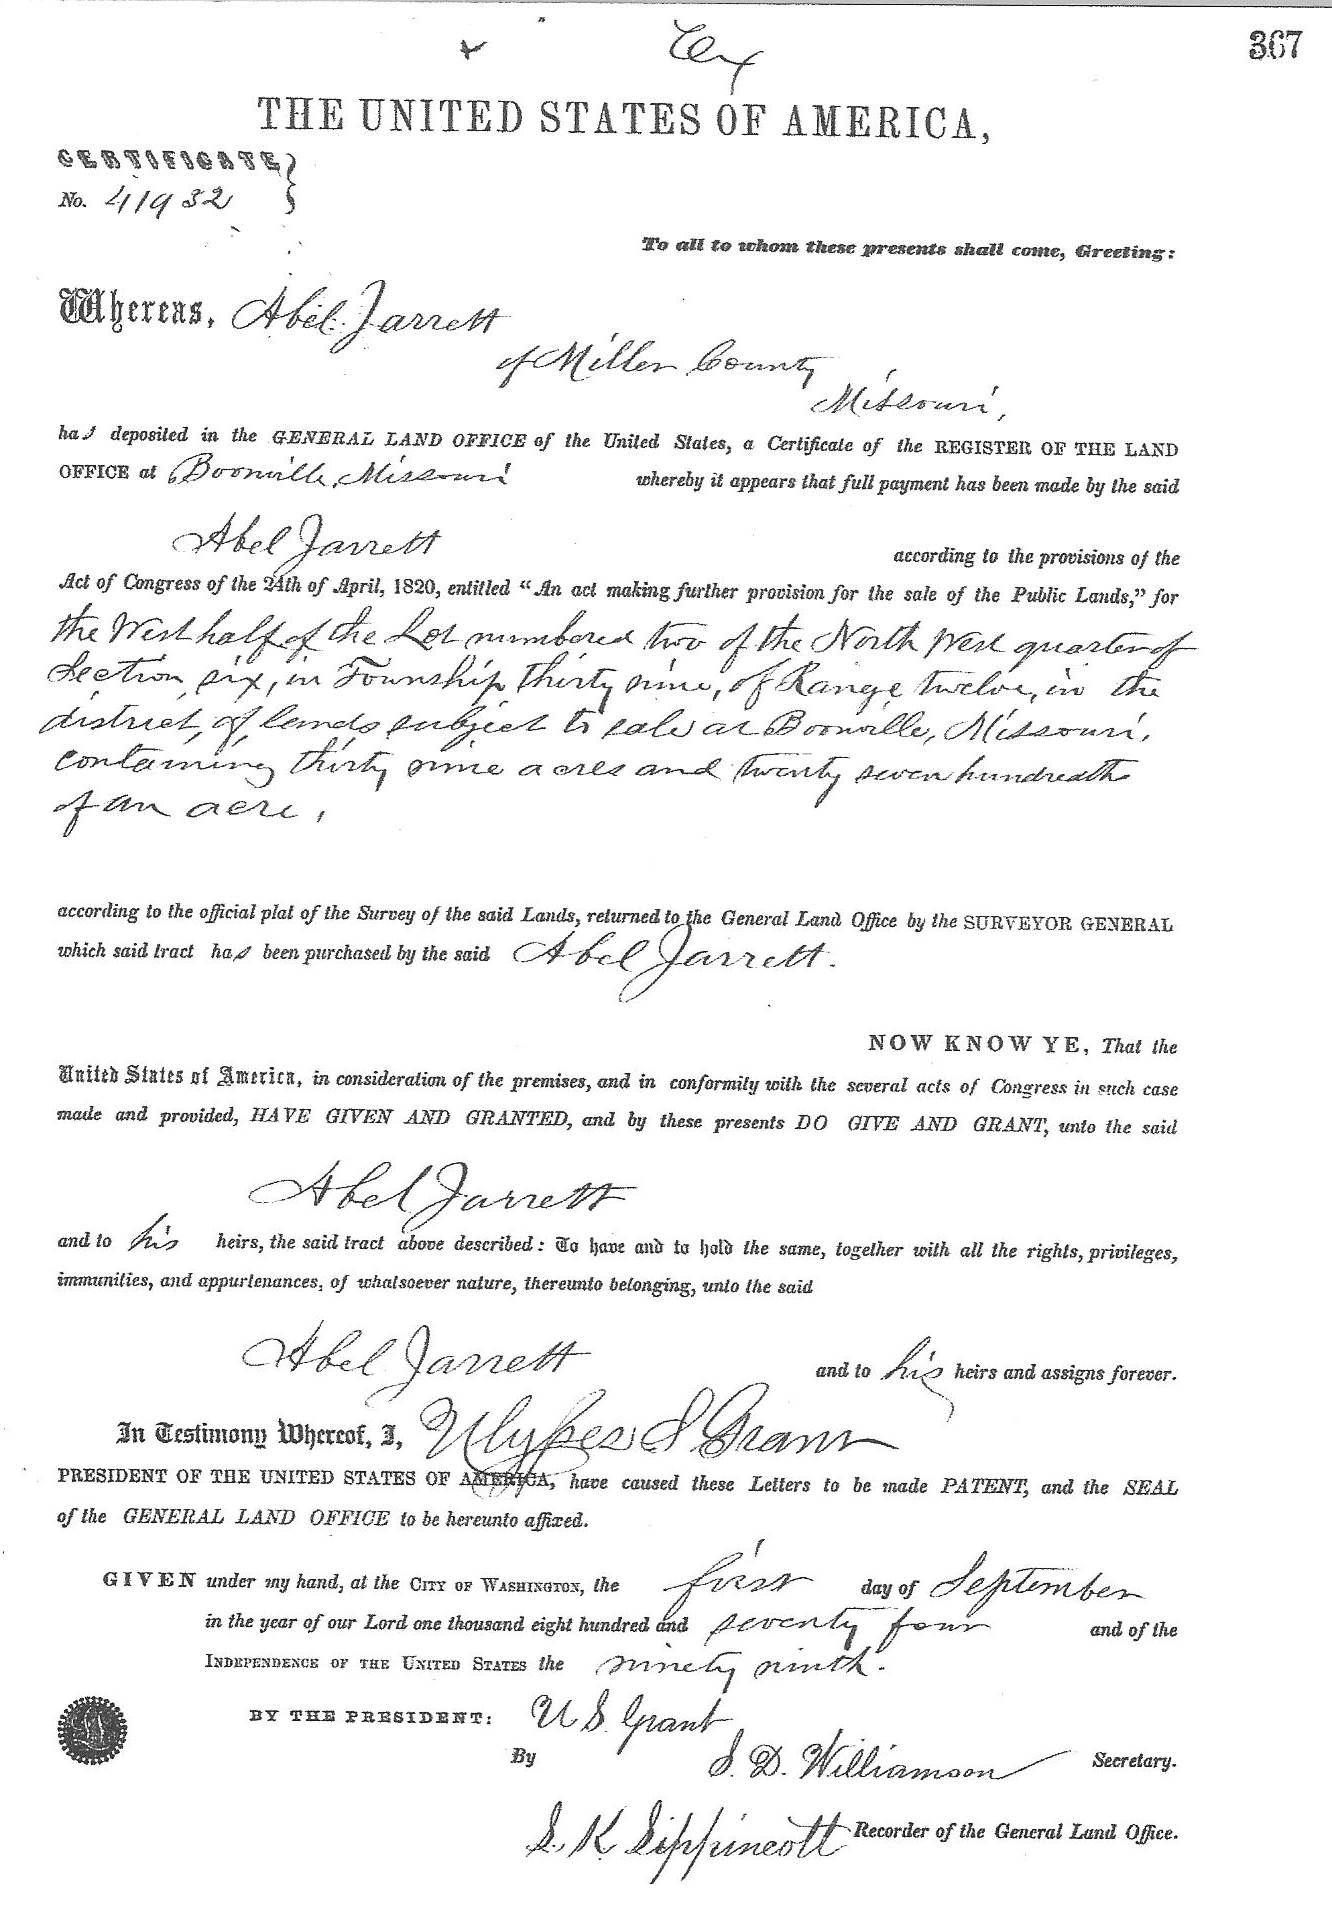 367
THE UNITED STATES OF AMERICA,
CERTIFICATE
No. 41932
To all to whom these presents shall come, Greeting:
Whereas, Abel Jarrett
of Miller County
Missouri,
has deposited in the GENERAL LAND OFFICE of the United States, a Certificate of the REGISTER OF THE LAND
OFFICE at Boonville, Missouri whereby it appears that full payment has been made by the said
Abel Jarrett according to the provisions of the
Act of Congress of the 24th of April, 1820, entitled "An act making further provision for the sale of the Public Lands," for
the West half of the Lot numbered two of the North West quarter of
Section six, in Township thirty nine, of Range twelve, in the
district of lands subject to sale at Boonville, Missouri,
containing thirty nine acres and twenty seven hundredth
of an acre,
according to the official plat of the Survey of the said Lands, returned to the General Land Office by the SURVEYOR GENERAL
which said tract has been purchased by the said Abel Jarrett.
NOW KNOW YE, That the
United States of America, in consideration of the premises, and in conformity with the several acts of Congress in such case
made and provided, HAVE GIVEN AND GRANTED, and by these presents DO GIVE AND GRANT, unto the said
Abel Jarrett
and to his heirs, the said tract above described: To have and to hold the same, together with all the rights, privileges,
immunities, and appurtenances, of whatsoever nature, thereunto belonging, unto the said
Abel Jarrett and to his heirs and assigns forever.
In Testimony Whereof, I, Ulysses S Grant
PRESIDENT OF THE UNITED STATES OF AMERICA, have caused these Letters to be made PATENT, and the SEAL
of the GENERAL LAND OFFICE to be hereunto affixed.
GIVEN under my hand, at the CITY OF WASHINGTON, the first day of September
in the year of our Lord one thousand eight hundred and seventy four and of the
INDEPENDENCE OF THE UNITED STATES the ninety ninth.
BY THE PRESIDENT: U S. Grant
By S. D. Williamson Secretary.
S. K Lippincott Recorder of the General Land Office.